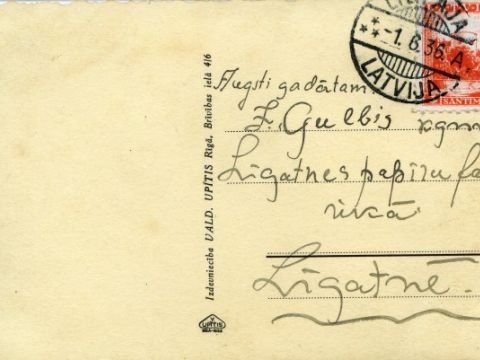 -1. 8. 36. A.
LATVIJA
SANTIM
Augsti godātam.
F. Gulbis kgm
Līgatnes papīru fa
rikā
Līgatnē.
Izdevniecība VALD. UPITIS Rīgā, Brīvības ielā 4/6
UPITIS